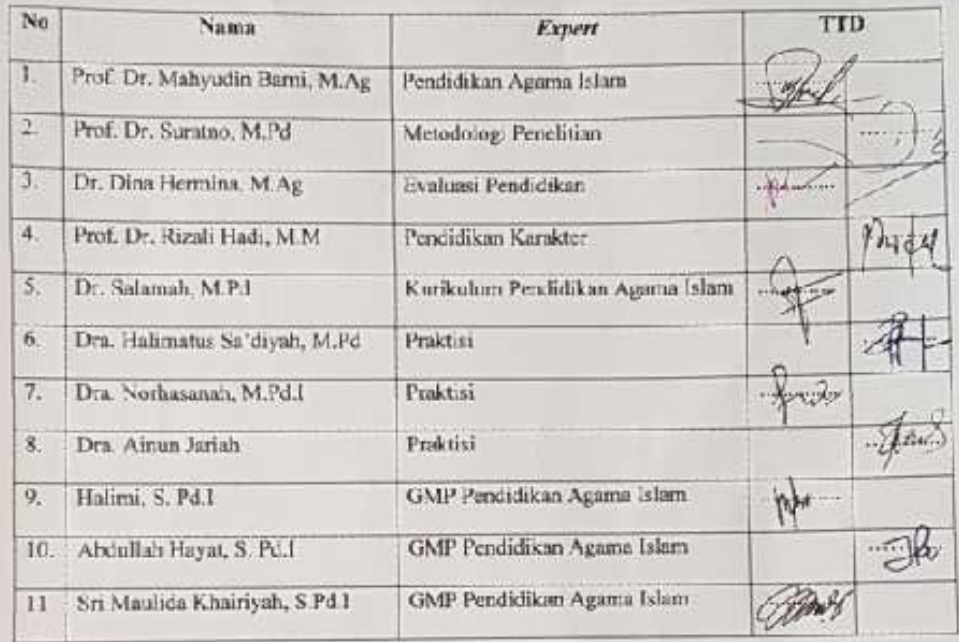 No Nama Expert TTD
1. Prof. Dr. Mahyudin Barni, M.Ag Pendidikan Agama Islam
2. Prof. Dr. Suratno, M.Pd Metodologi Penelitian
3. Dr. Dina Hermina, M.Ag Evaluasi Pendidikan
4. Prof. Dr. Rizali Hadi, M.M Pendidikan Karakter
5. Dr. Salamah, M.Pd Kurikulum Pendidikan Agama Islam
6. Dra. Halimatus Sa'diyah, M.Pd Praktisi
7. Dra. Norhasanah, M.Pd.I Praktisi
8. Dra. Ainun Jariah Praktisi
9. Halimi, S. Pd.I GMP Pendidikan Agama Islam
10. Abdullah Hayat, S. Pd.I GMP Pendidikan Agama Islam
11 Sri Maulida Khairiyah, S.Pd.I GMP Pendidikan Agama Islam